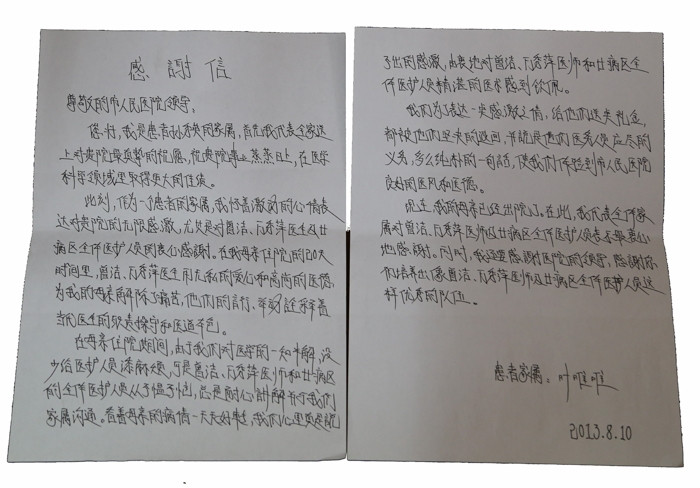 感謝信
尊敬的市人民医院领导：
您好，我是患者孙 的家属，首先我代表全家送
上对贵院最真挚的祝愿，祝贵院事业蒸蒸日上，在医学
科学领域里取得更大的佳绩。
此刻，作为一个患者的家属，我怀着激动的心情表
达对贵院的无限感激，尤其是对曾洁、万秀萍医生及廿
病区全体医护人员的衷心感谢。在我母亲住院的20天
时间里，曾洁、万秀萍医生用无私的爱心和高尚的医德
为我的母亲解除了痛苦，他们的言行、举动 着
当代医生的职业操守和医道本色。
在母亲住院期间，由于我们对医学的一知半解，没
少给医护人员添麻烦，可是曾洁、万秀萍医师和廿病区
的全体医护人员从不愠不恼，总是耐心讲解并与我们
家属沟通。看着母亲的病情一天天好转，我们心里更是说
不出的感激，由衷地对曾洁、万秀萍医师和廿病区全
体医护人员精湛的医术感到钦佩。
我们为了表达一点感激之情，给他们送失礼金，
都被他们坚决的退回，并说是他们医务人员应尽的
义务，多么纯朴的一句话，使我们体验到市人民医院
良好的医风和医德。
现在，我的母亲已经出院了。在此，我代表全体家
属对曾洁、万秀萍医师及廿病区全体医护人员表示最衷心
地感谢。同时，我还要感谢医院的领导，感谢你
们培养出像曾洁、万秀萍医师及廿病区全体医护人员这
样优秀的队伍。
患者家属：叶唯唯
2013.8.10